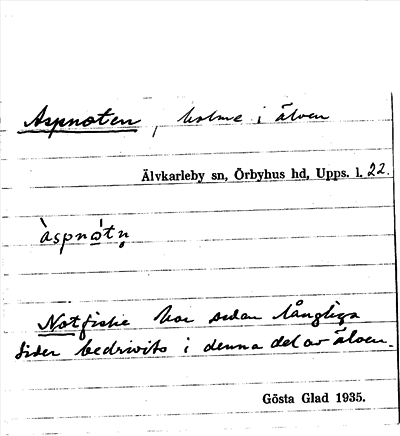 Aspnoten, holme i älven
Älvkarleby sn, Örbyhus hd, Upps. l. 22.
àspnó̱tn̥
Notfiske har sedan långliga
tider bedrivits i denna del av älven.
Gösta Glad 1935.